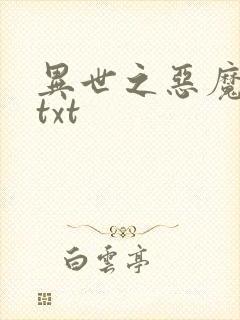 異世之惡魔
txt
白雲亭